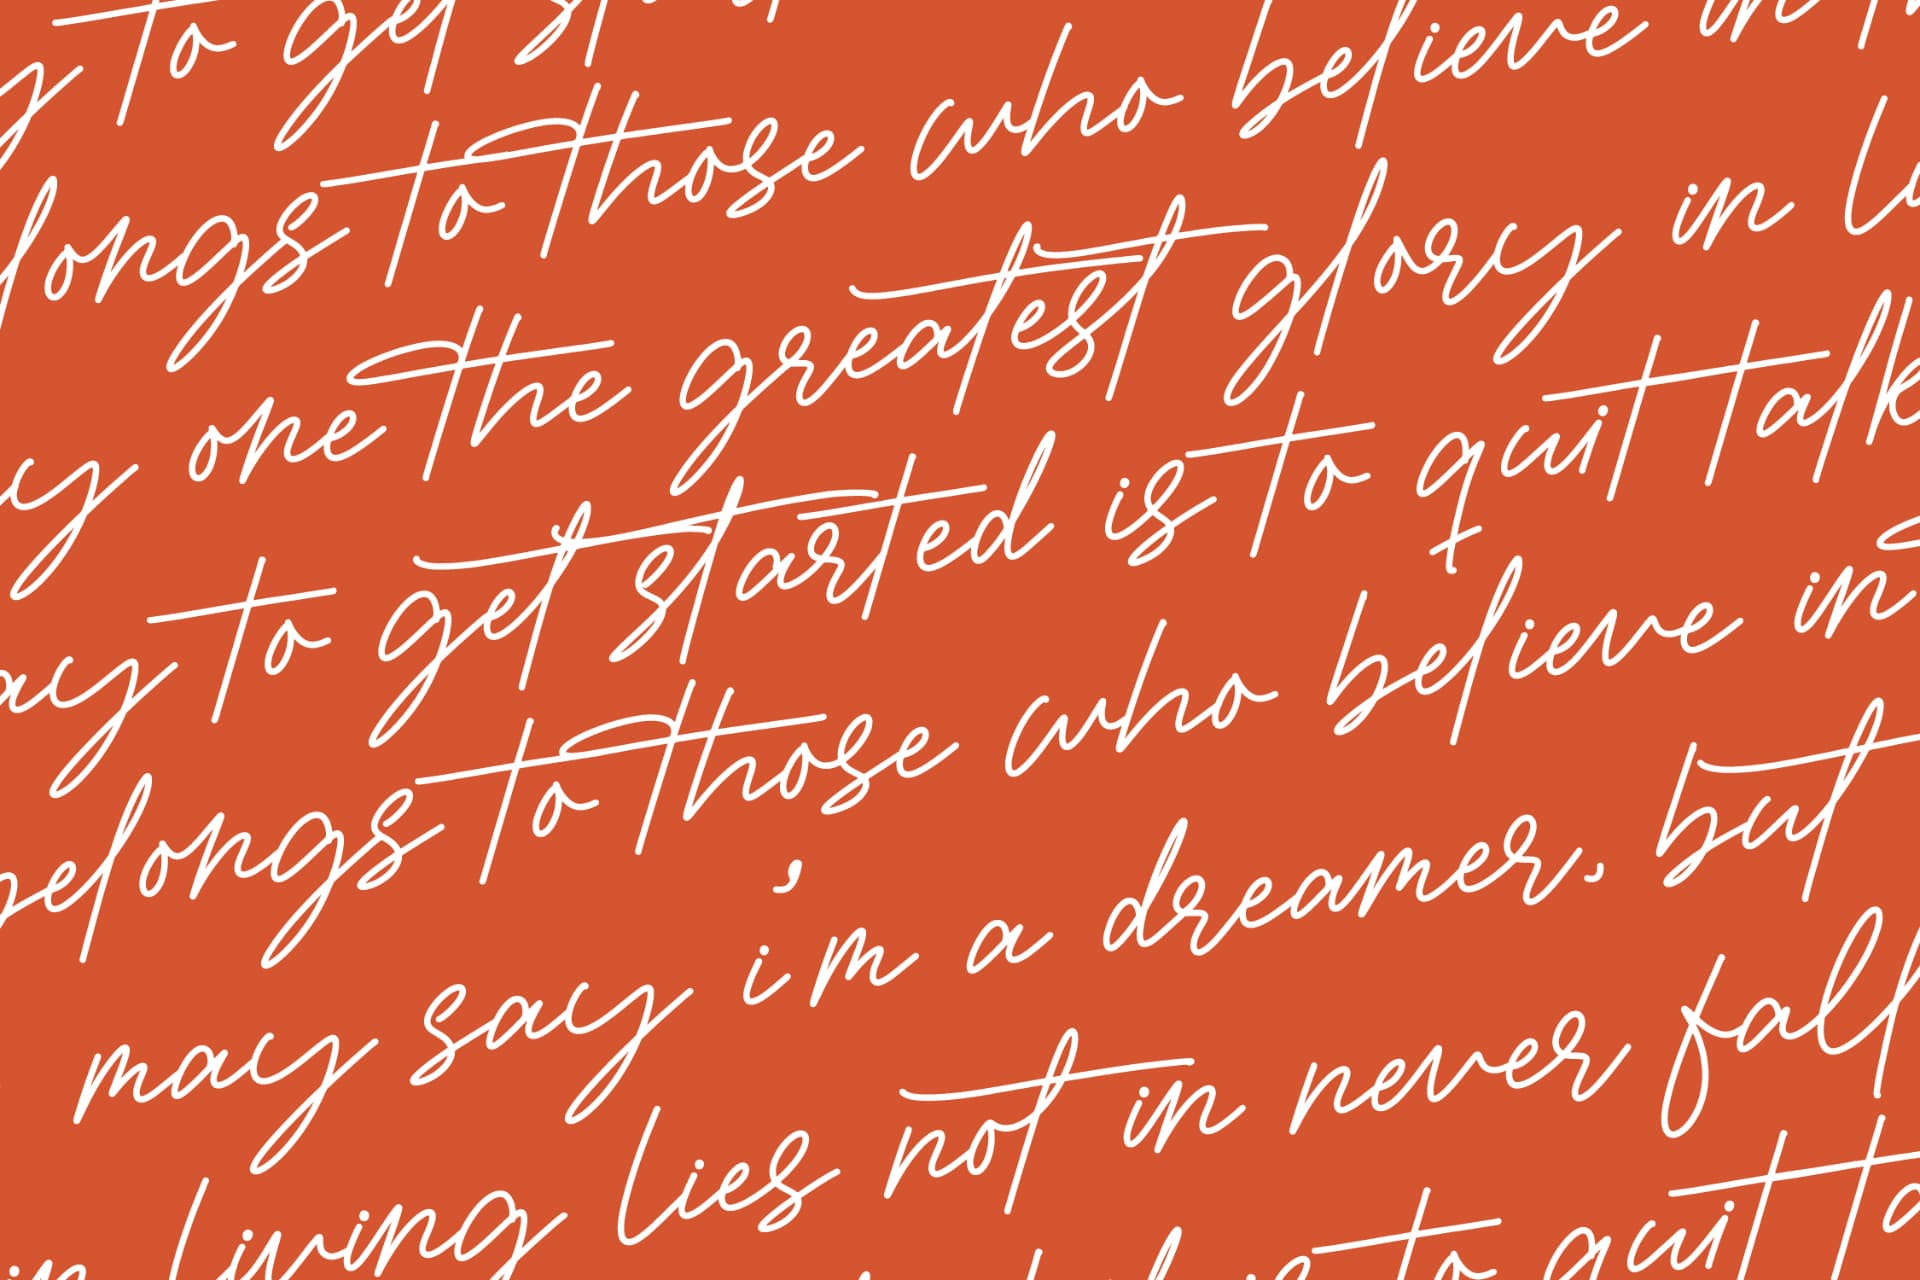 to get
longs to those who believe in
one the greatest glory in
to get started is to quit talk
belongs to those who believe in
may say i'm a dreamer, but
in living lies not in never fall
is to quit ta